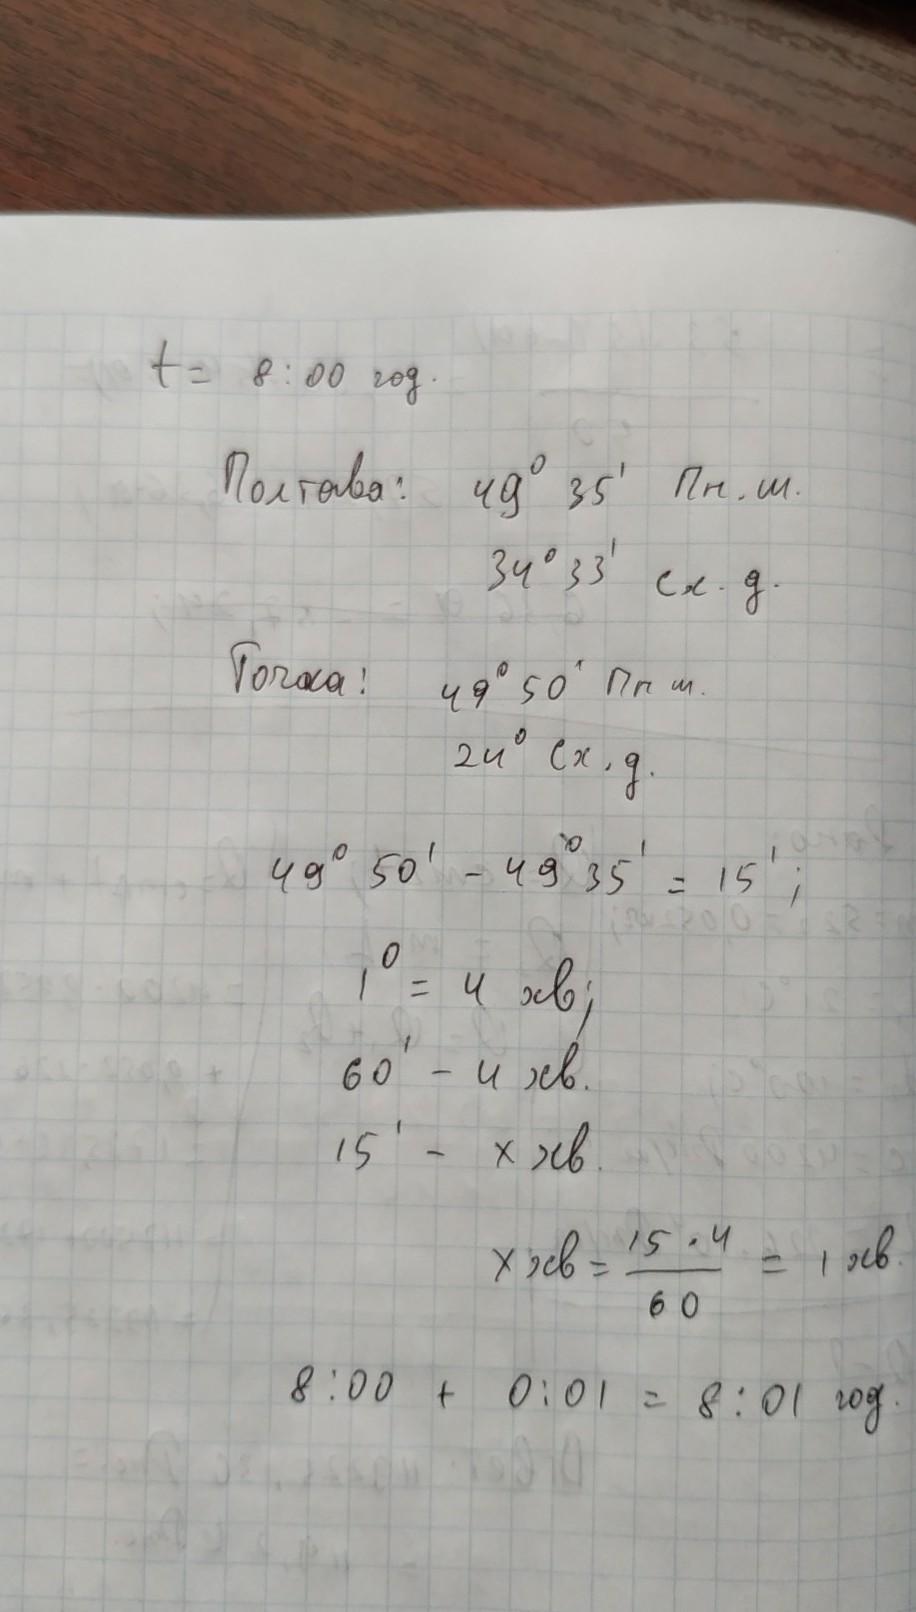 t = 8:00 год.
Полтава: 49° 35' Пн. ш.
34° 33' Сх. д.
Точка: 49° 50' Пн ш.
24° Сх. д.
49° 50' - 49° 35' = 15';
1° = 4 хв;
60' - 4 хв.
15' - x хв.
x хв = 15 · 4 / 60 = 1 хв.
8:00 + 0:01 = 8:01 год.